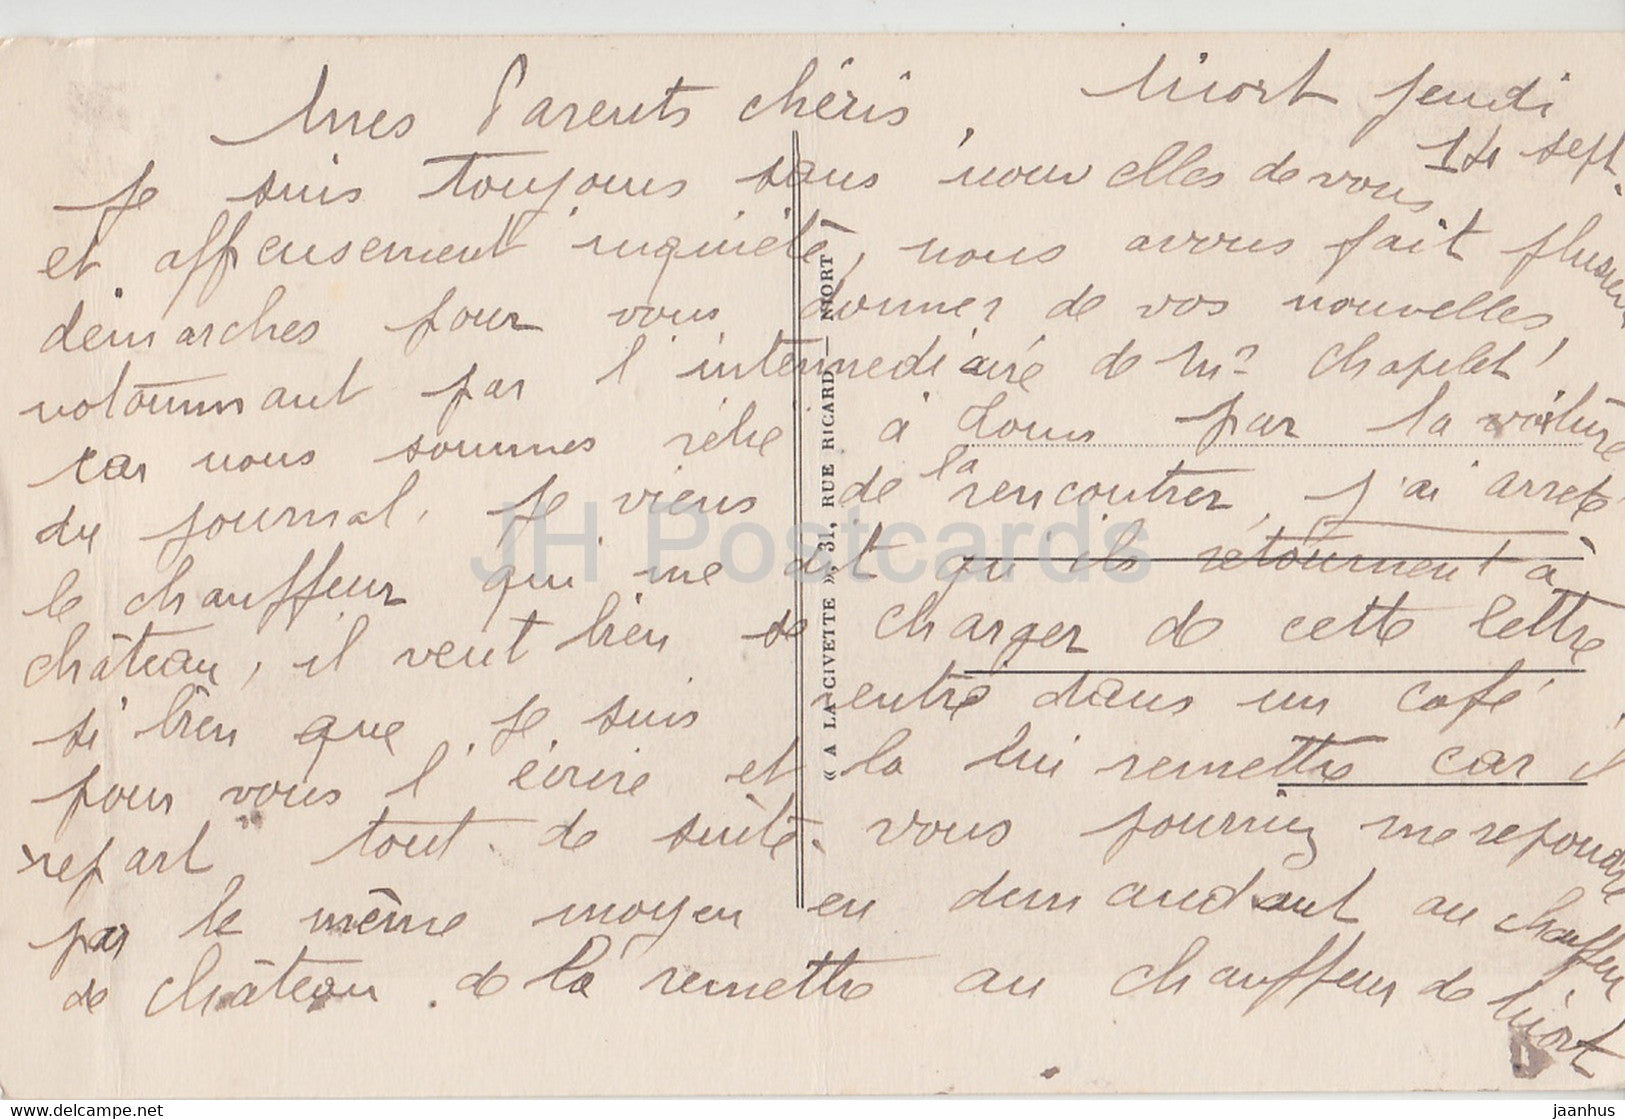 Niort Jeudi
14 sept.
Mes Parents chéris,
Je suis toujours sans nouvelles de vous
et affreusement inquiète, nous avons fait plusieurs
démarches pour vous donner de vos nouvelles,
notamment par l'intermédiaire de Mr Chapelet!
car nous sommes relié à Tours par la voiture
du journal. Je viens de la rencontrer, j'ai arreté
le chauffeur qui me dit qu'ils retournent à
château, il veut bien se charger de cette lettre
si bien que je suis entré dans un café,
pour vous l'écrire et la lui remettre car il
repart tout de suite. vous pourriez me repondre
par le même moyen en demandant au chauffeur
de château de la remettre au chauffeur de Niort
« A LA CIVETTE », 31, RUE RICARD — NIORT
JH Postcards
www.delcampe.net
jaanhus